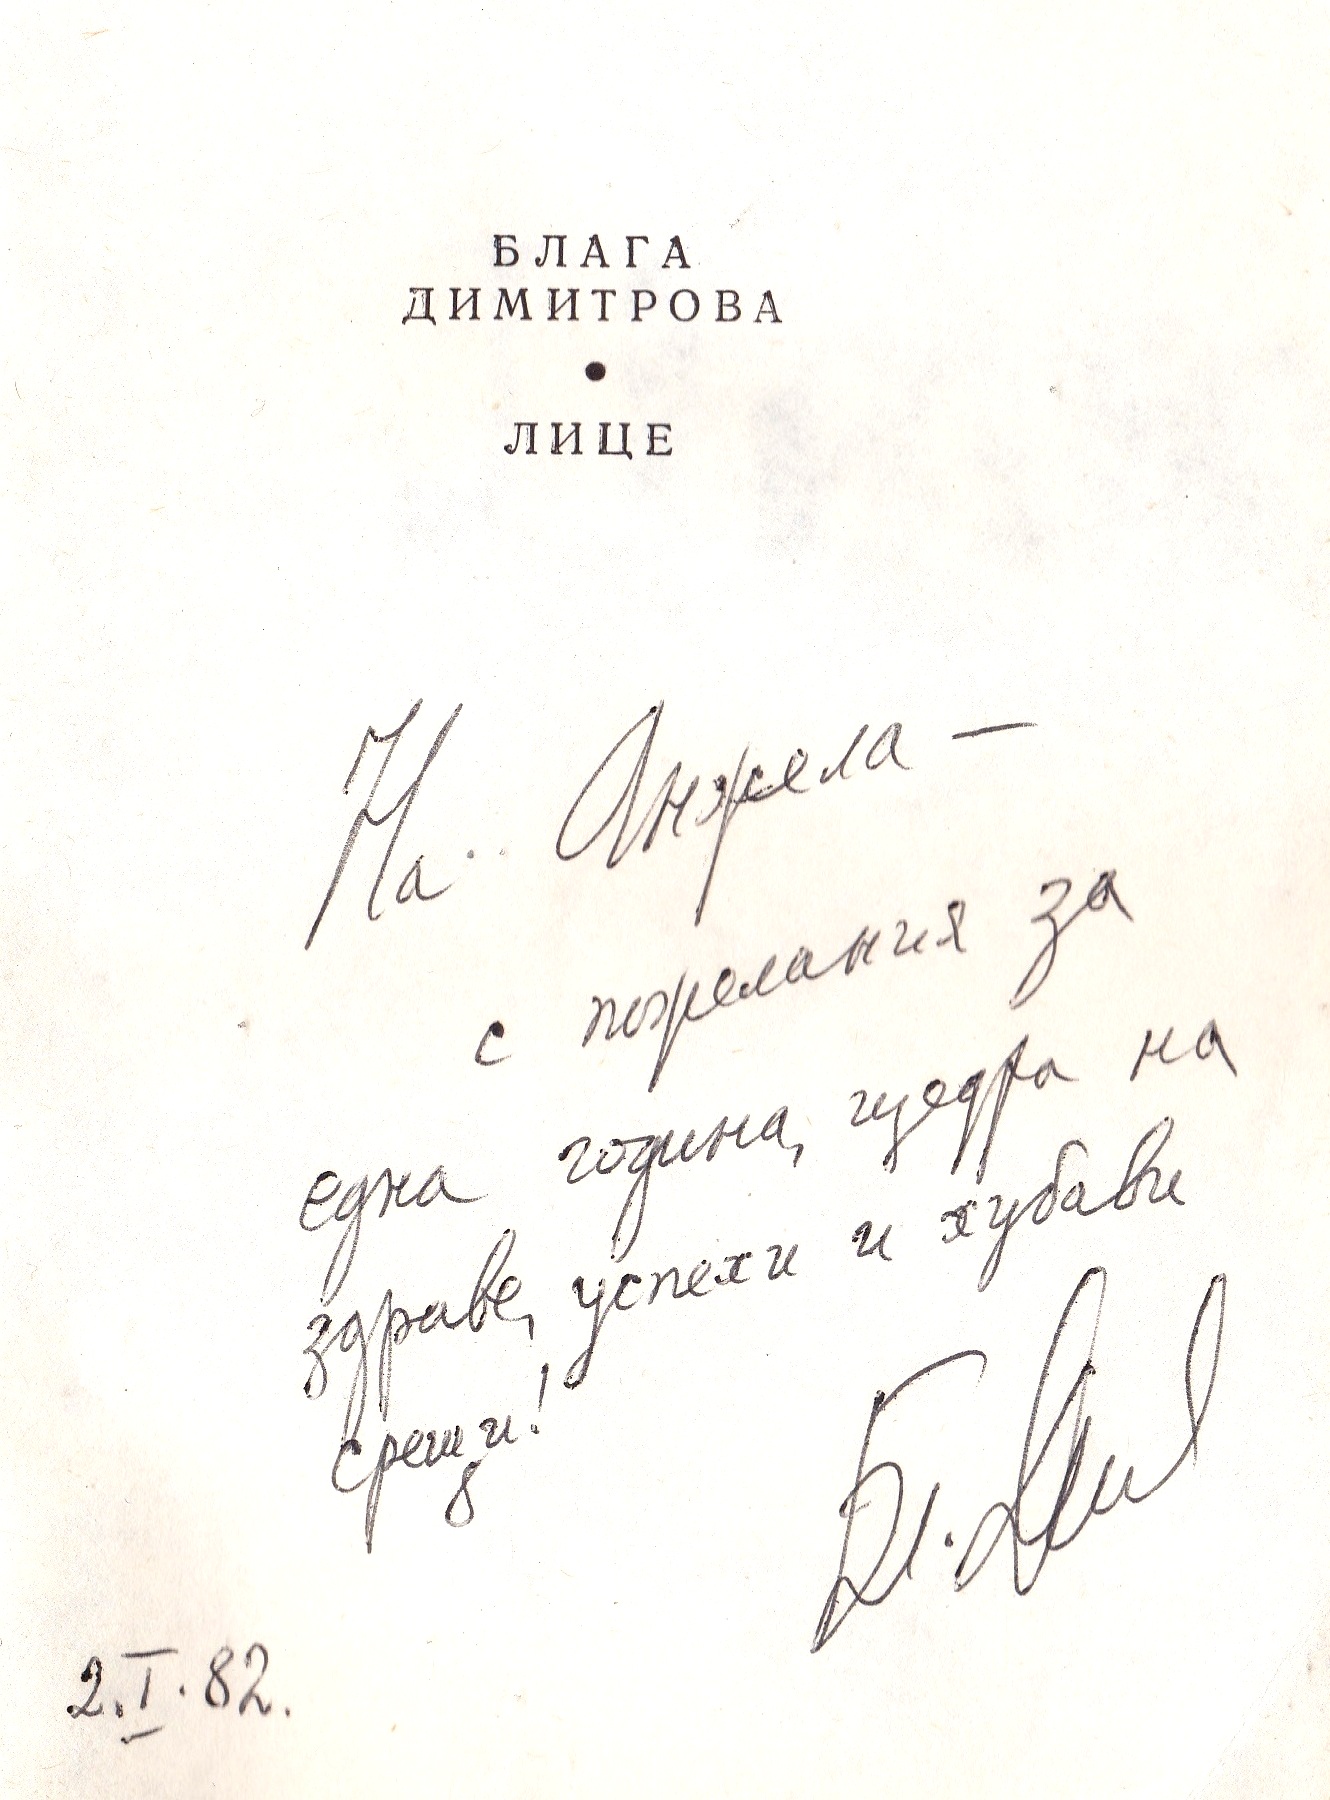 БЛАГА
ДИМИТРОВА
•
ЛИЦЕ
На Анжела –
с пожелания за
една година, щедра на
здраве, успехи и хубави
срещи!
Бл. Дим
2.I.82.